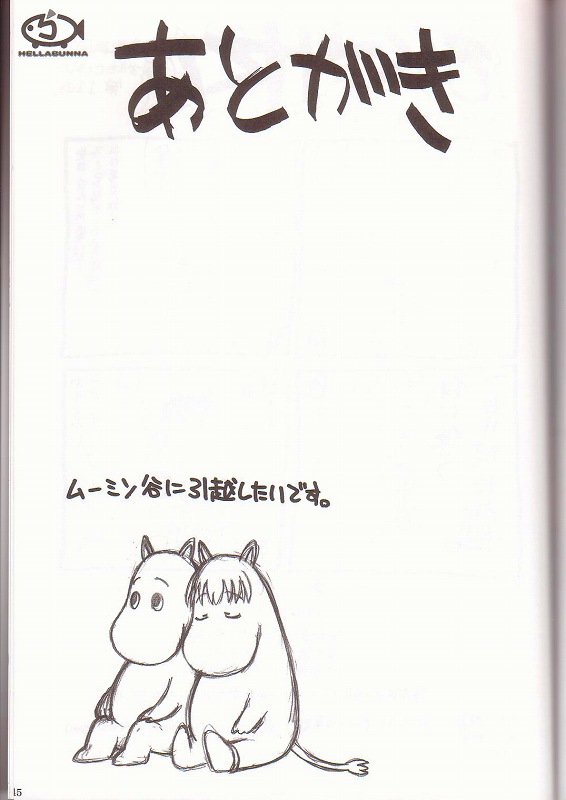 HELLABUNNA
あとがき
ムーミン谷に引越したいです。
15